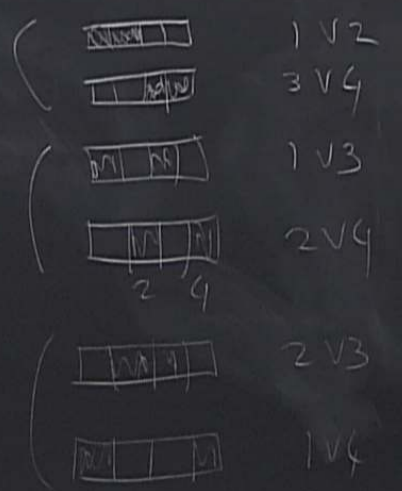 1 V 2
3 V 4
1 V 3
2 V 4
2 4
2 V 3
1 V 4